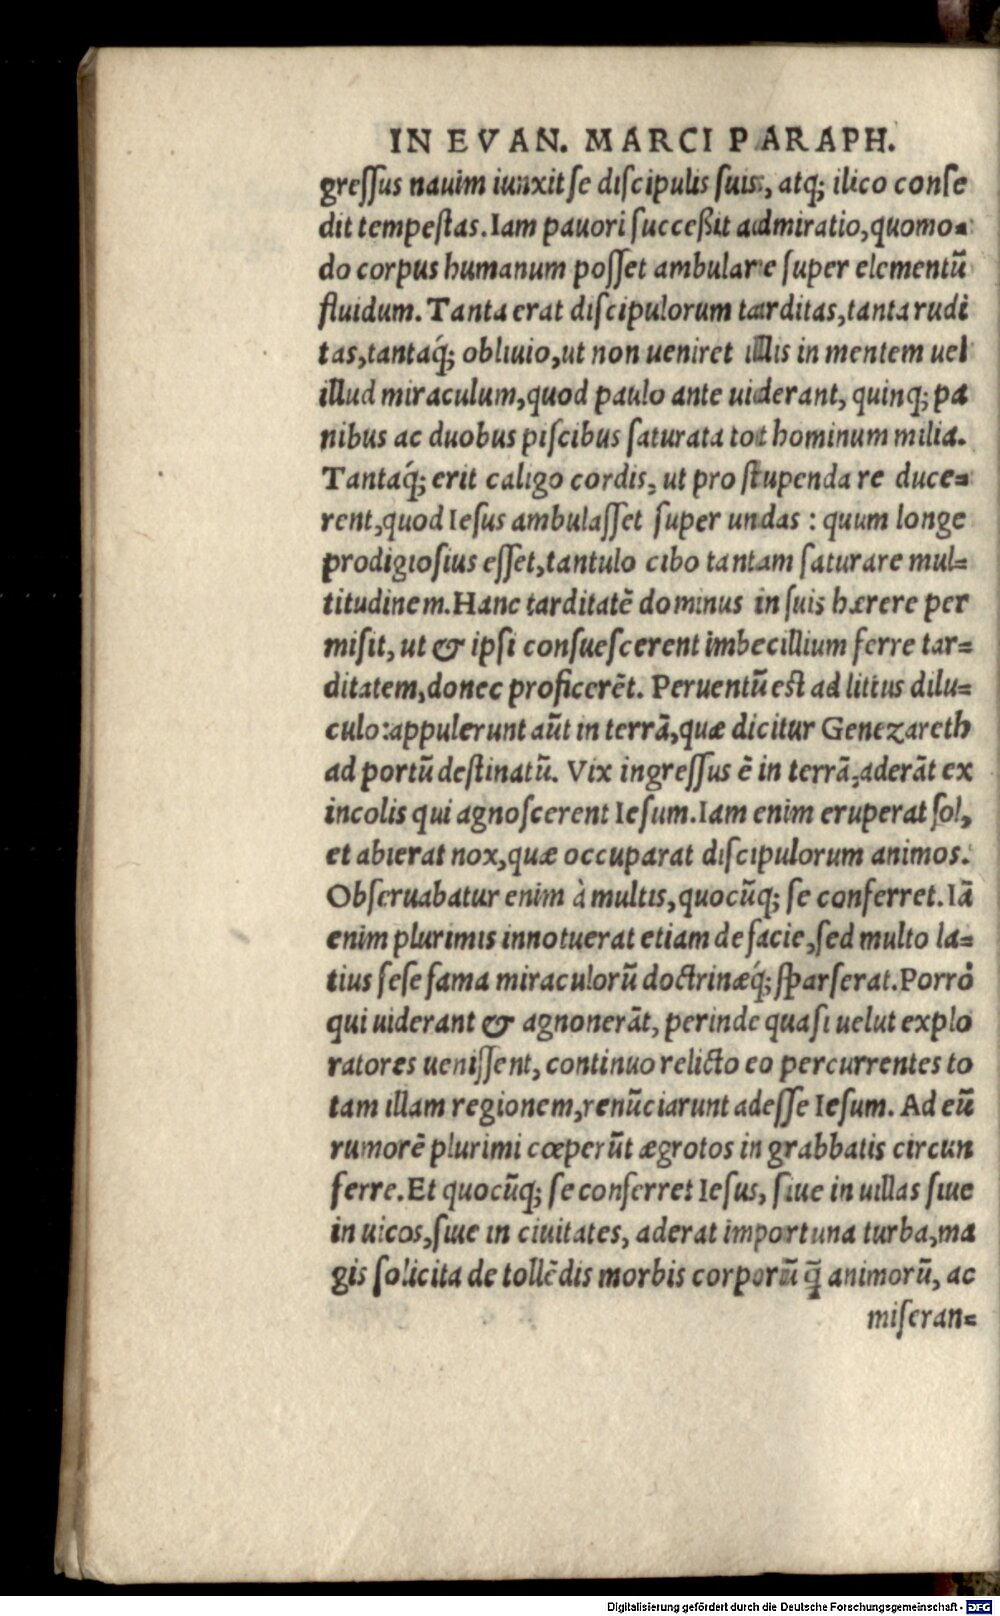 IN EVAN. MARCI PARAPH.
greſſus nauim iunxit ſe diſcipulis ſuis, atq; ilico conſe
dit tempeſtas. Iam pauori ſucceßit admiratio, quomo=
do corpus humanum poſſet ambulare ſuper elementũ
fluidum. Tanta erat diſcipulorum tarditas, tanta rudi
tas, tantaq́; obliuio, ut non ueniret illis in mentem uel
illud miraculum, quod paulo ante uiderant, quinq; pa
nibus ac duobus piſcibus ſaturata tot hominum milia.
Tantaq́; erit caligo cordis, ut pro ſtupenda re duce=
rent, quod Ieſus ambulaſſet ſuper undas : quum longe
prodigioſius eſſet, tantulo cibo tantam ſaturare mul=
titudinem. Hanc tarditatẽ dominus in ſuis hærere per
miſit, ut & ipſi conſueſcerent imbecillium ferre tar=
ditatem, donec proficerẽt. Peruentũ eſt ad littus dilu=
culo: appulerunt aũt in terrã, quæ dicitur Genezareth
ad portũ deſtinatũ. Vix ingreſſus ẽ in terrã, aderãt ex
incolis qui agnoſcerent Ieſum. Iam enim eruperat ſol,
et abierat nox, quæ occuparat diſcipulorum animos.
Obſeruabatur enim à multis, quocũq; ſe conferret. Iã
enim plurimis innotuerat etiam de facie, ſed multo la=
tius ſeſe fama miraculorũ doctrinæq́; ſparſerat. Porrò
qui uiderant & agnonerãt, perinde quaſi uelut explo
ratores ueniſſent, continuo relicto eo percurrentes to
tam illam regionem, renũciarunt adeſſe Ieſum. Ad eũ
rumorẽ plurimi cœperũt ægrotos in grabbatis circun
ferre. Et quocũq; ſe conferret Ieſus, ſiue in uillas ſiue
in uicos, ſiue in ciuitates, aderat importuna turba, ma
gis ſolicita de tollẽdis morbis corporũ q̃ animorũ, ac
miſeran=
Digitalisierung gefördert durch die Deutsche Forschungsgemeinschaft - DFG